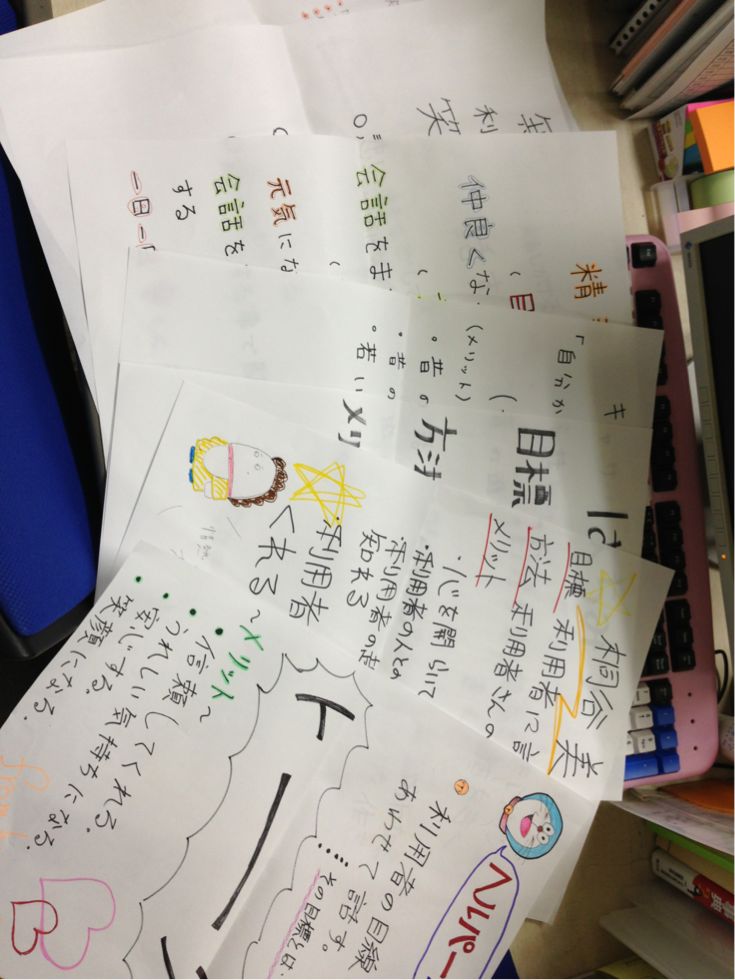 利
笑
精
目
仲良くな
会話をま
元気にな
会話を
する
一日一
キ
「自分か
(メリット)
。昔の
・昔の
。若い
は
目標
方法
メリ
桐谷美
目標 利用者に言
方法 利用者さんの
メリット
・心を開いて
・利用者の人との
・利用者の
知れる
利用者
くれる
ヘルパー
利用者の目線
あわせて話す。
……その目標とは
~メリット~
・信頼してくれる。
・うれしい気持ちになる。
・安心する。
・笑顔になる。
from